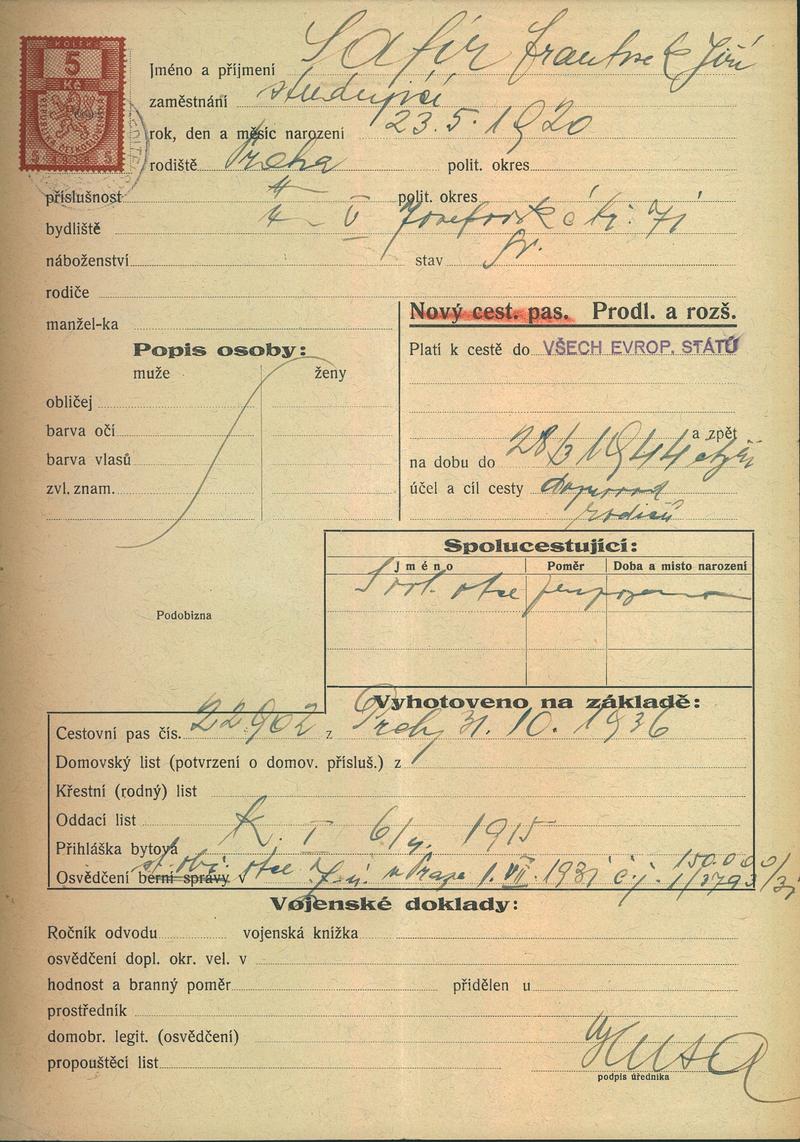 KOLEK
5
Kč
Jméno a příjmení Šafír František Jiří
zaměstnání studující
rok, den a měsíc narození 23.5.1920
rodiště Praha polit. okres
příslušnost polit. okres
bydliště V Josefovská čtv. 71
náboženství stav sv.
rodiče
manžel-ka
Nový cest. pas. Prodl. a rozš.
Popis osoby:
Platí k cestě do VŠECH EVROP. STÁTŮ
muže ženy
obličej
barva očí
barva vlasů
zvl. znam.
a zpět
na dobu do 28/3 1944
účel a cíl cesty doprovod
rodičů
Spolucestující:
Jméno Poměr Doba a místo narození
otce
Podobizna
Vyhotoveno na základě:
Cestovní pas čís. 22902 z Prahy 31. 10. 1936
Domovský list (potvrzení o domov. přísluš.) z
Křestní (rodný) list
Oddací list
Přihláška bytová K. I 1915
150.000/
Osvědčení berní správy v st. obč. otce Z.ú. v Praze 1. VII. 1931 č.j.
Vojenské doklady:
Ročník odvodu vojenská knížka
osvědčení dopl. okr. vel. v
hodnost a branný poměr přidělen u
prostředník
domobr. legit. (osvědčení)
propouštěcí list
Husa
podpis úředníka